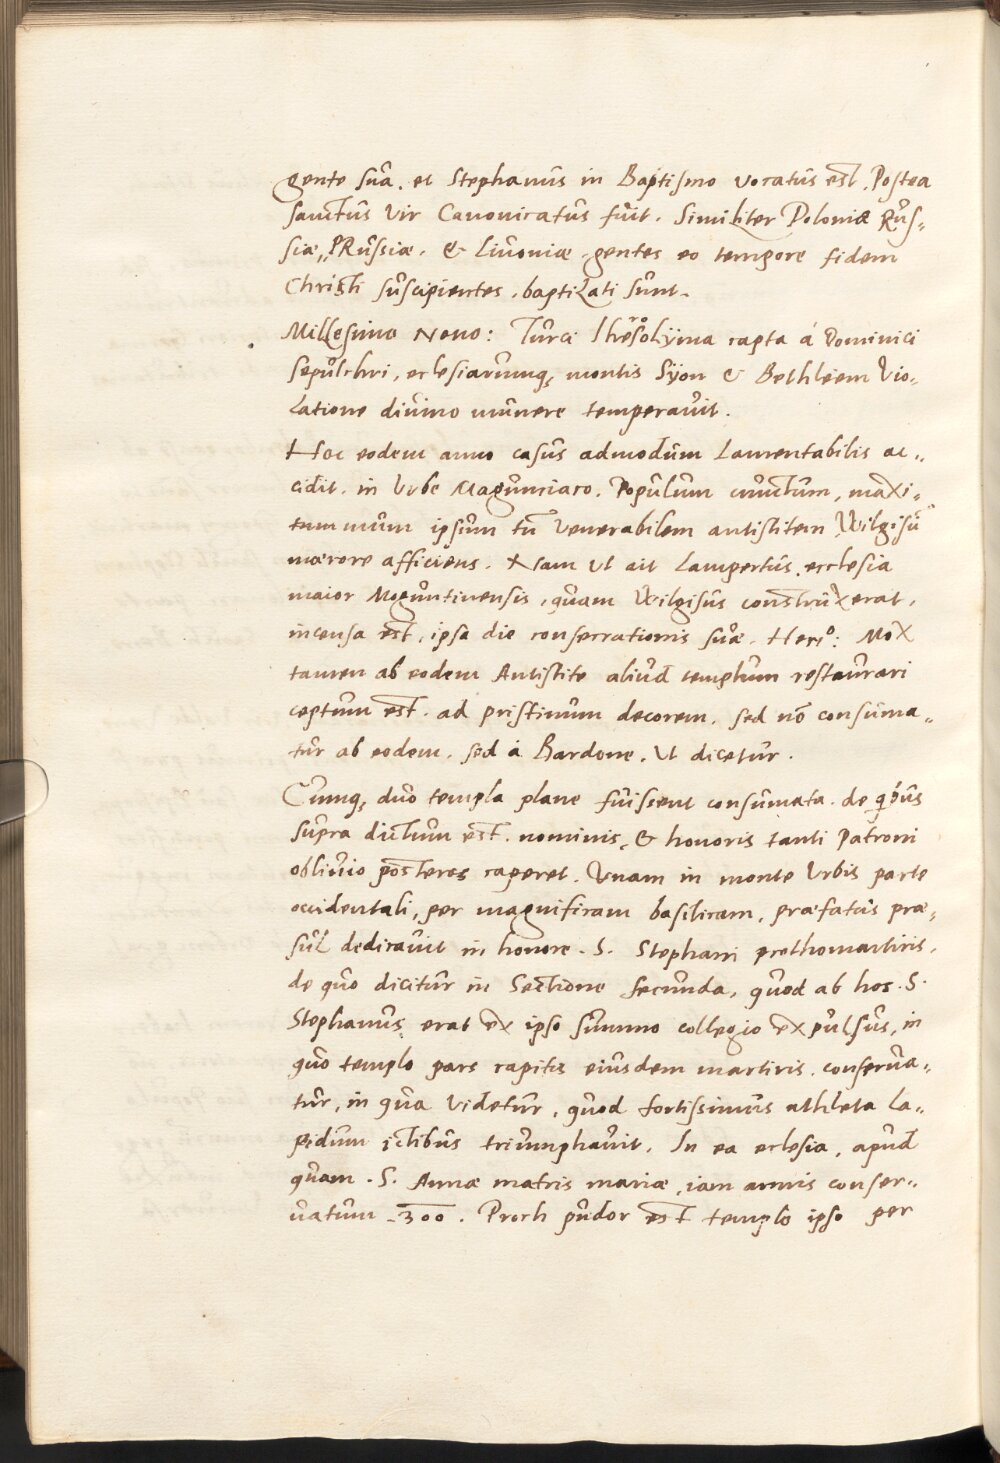 gente sua. et Stephanus in Baptismo vocatus est. Postea
sanctus vir Canonicatus fuit. Similiter Poloniæ Rus„
siæ, PRussiæ. & Livoniæ gentes eo tempore fidem
Christi suscipientes, baptizati sunt.
Millesimo Nono: Turci Iherosolyma capta á Dominici
sepulchri, ecclesiarumq, montis Syon & Bethleem vio„
latione divino munere temperavit.
Hoc eodem anno casus admodum lamentabilis ac„
cidit. in Urbe Magunciaco. Populum cunctum, maxi„
tummum ipsum tū venerabilem antistitem Wilgisū
mærore afficiens. Nam ut ait Lampertus, ecclesia
maior Moguntinensis, quam Wilgisus construxerat,
incensa est, ipsa die consecrationis suæ. Heriº: Mox
tamen ab eodem Antistite aliud templum restaurari
ceptum est. ad pristinum decorem. sed nō consuma„
tur ab eodem. sed á Bardone. Ut dicetur.
Cumq, duo templa plane fuissent consumata. de qibus
supra dictum est. nominis, & honoris tanti Patroni
oblivio posteros caperet. Unam in monte Urbis parte
occidentali, per magnificam basilicam, præfatus præ„
sul dedicavit in honore. S. Stephani prothomartiris,
de quo dicitur in Sectione secunda, quod ab hos. S.
Stephanus erat ex ipso summo collegio expulsus, in
quo templo pars capitis eiusdem martiris. conserva„
tur, in qua videtur, quod fortissimus athleta la„
pidum ictibus triumphavit. In ea eclesia, apud
quam. S. Annæ matris mariæ, iam annis conser„
vatum. 300. Proch pudor est templo ipso per